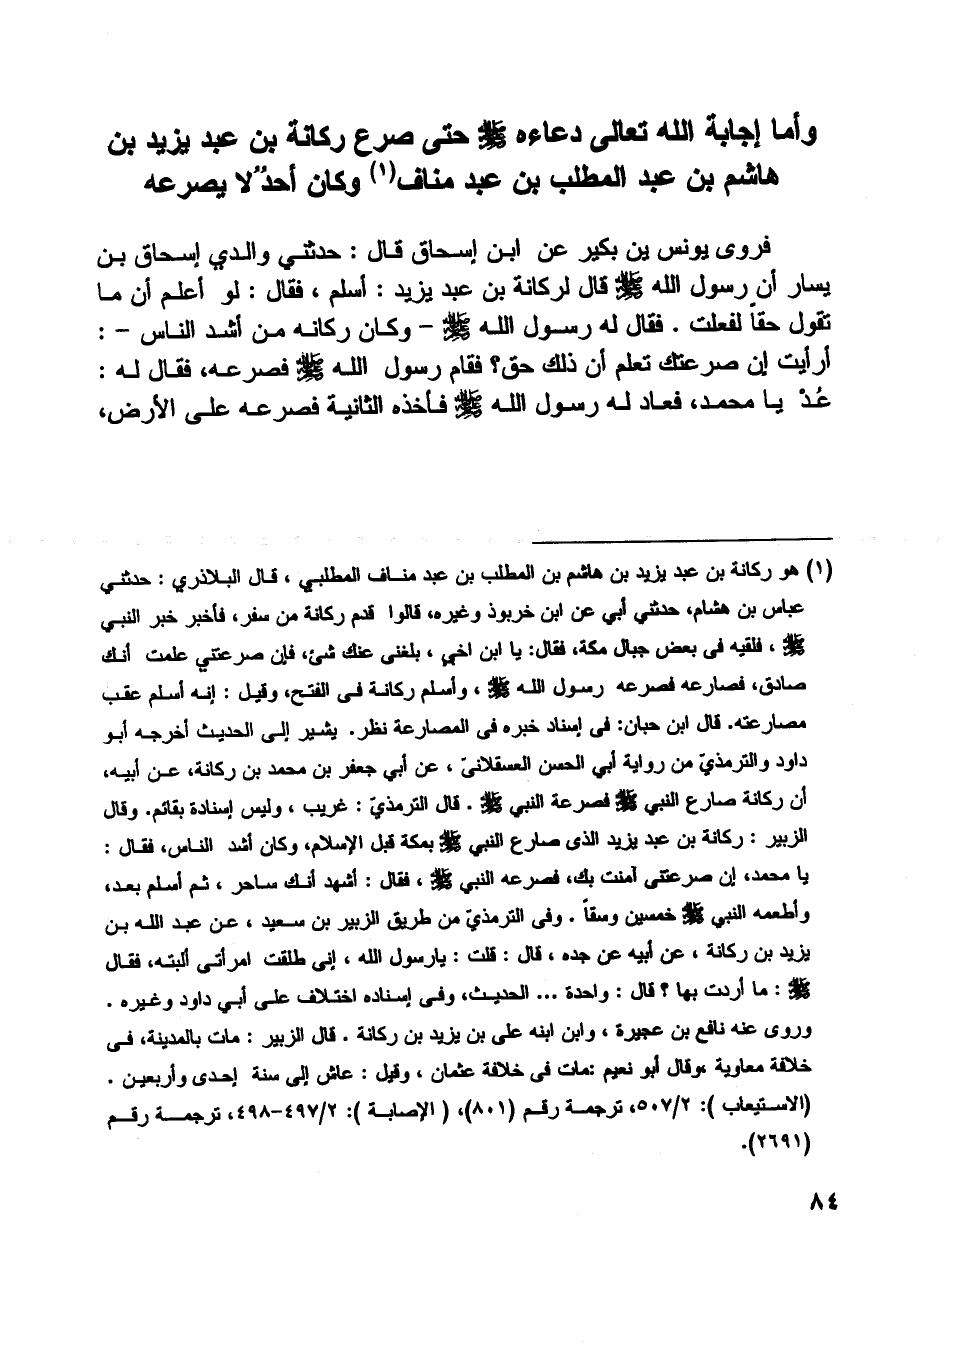 وأما إجابة الله تعالى دعاءه ﷺ حتى صرع ركانة بن عبد يزيد بن
هاشم بن عبد المطلب بن عبد مناف(١) وكان أحدٌ لا يصرعه
فروى يونس بن بكير عن ابن إسحاق قال : حدثني والدي إسحاق بن
يسار أن رسول الله ﷺ قال لركانة بن عبد يزيد : أسلم ، فقال : لو أعلم أن ما
تقول حقاً لفعلت . فقال له رسول الله ﷺ – وكان ركانه من أشد الناس – :
أرأيت إن صرعتك تعلم أن ذلك حق؟ فقام رسول الله ﷺ فصرعه، فقال له :
عُدْ يا محمد، فعاد له رسول الله ﷺ فأخذه الثانية فصرعه على الأرض،
(١) هو ركانة بن عبد يزيد بن هاشم بن المطلب بن عبد مناف المطلبي ، قال البلاذري : حدثني
عباس بن هشام، حدثني أبي عن ابن خربوذ وغيره، قالوا قدم ركانة من سفر، فأخبر خبر النبي
ﷺ ، فلقيه فى بعض جبال مكة، فقال: يا ابن اخي ، بلغنى عنك شئ، فإن صرعتني علمت أنك
صادق، فصارعه فصرعه رسول الله ﷺ ، وأسلم ركانة فى الفتح، وقيل : إنه أسلم عقب
مصارعته. قال ابن حبان: فى إسناد خبره فى المصارعة نظر. يشير إلى الحديث أخرجه أبو
داود والترمذيّ من رواية أبي الحسن العسقلانيّ ، عن أبي جعفر بن محمد بن ركانة، عن أبيه،
أن ركانة صارع النبي ﷺ فصرعة النبي ﷺ . قال الترمذيّ : غريب ، وليس إسنادة بقائم. وقال
الزبير : ركانة بن عبد يزيد الذى صارع النبي ﷺ بمكة قبل الإسلام، وكان أشد الناس، فقال :
يا محمد، إن صرعتنى آمنت بك، فصرعه النبي ﷺ ، فقال : أشهد أنك ساحر ، ثم أسلم بعد،
وأطعمه النبي ﷺ خمسين وسقاً . وفى الترمذيّ من طريق الزبير بن سعيد ، عن عبد الله بن
يزيد بن ركانة ، عن أبيه عن جده ، قال : قلت : يارسول الله ، إنى طلقت امرأتى ألبته، فقال
ﷺ : ما أردت بها ؟ قال : واحدة ... الحديث، وفى إسناده اختلاف على أبي داود وغيره .
وروى عنه نافع بن عجيرة ، وابن ابنه على بن يزيد بن ركانة . قال الزبير : مات بالمدينة، فى
خلافة معاوية ،وقال أبو نعيم :مات فى خلافة عثمان ، وقيل : عاش إلى سنة إحدى وأربعين .
(الاستيعاب ): ٥٠٧/٢، ترجمة رقم (٨٠١)، ( الإصابة ): ٤٩٧/٢-٤٩٨، ترجمة رقم
(٢٦٩١).
٨٤